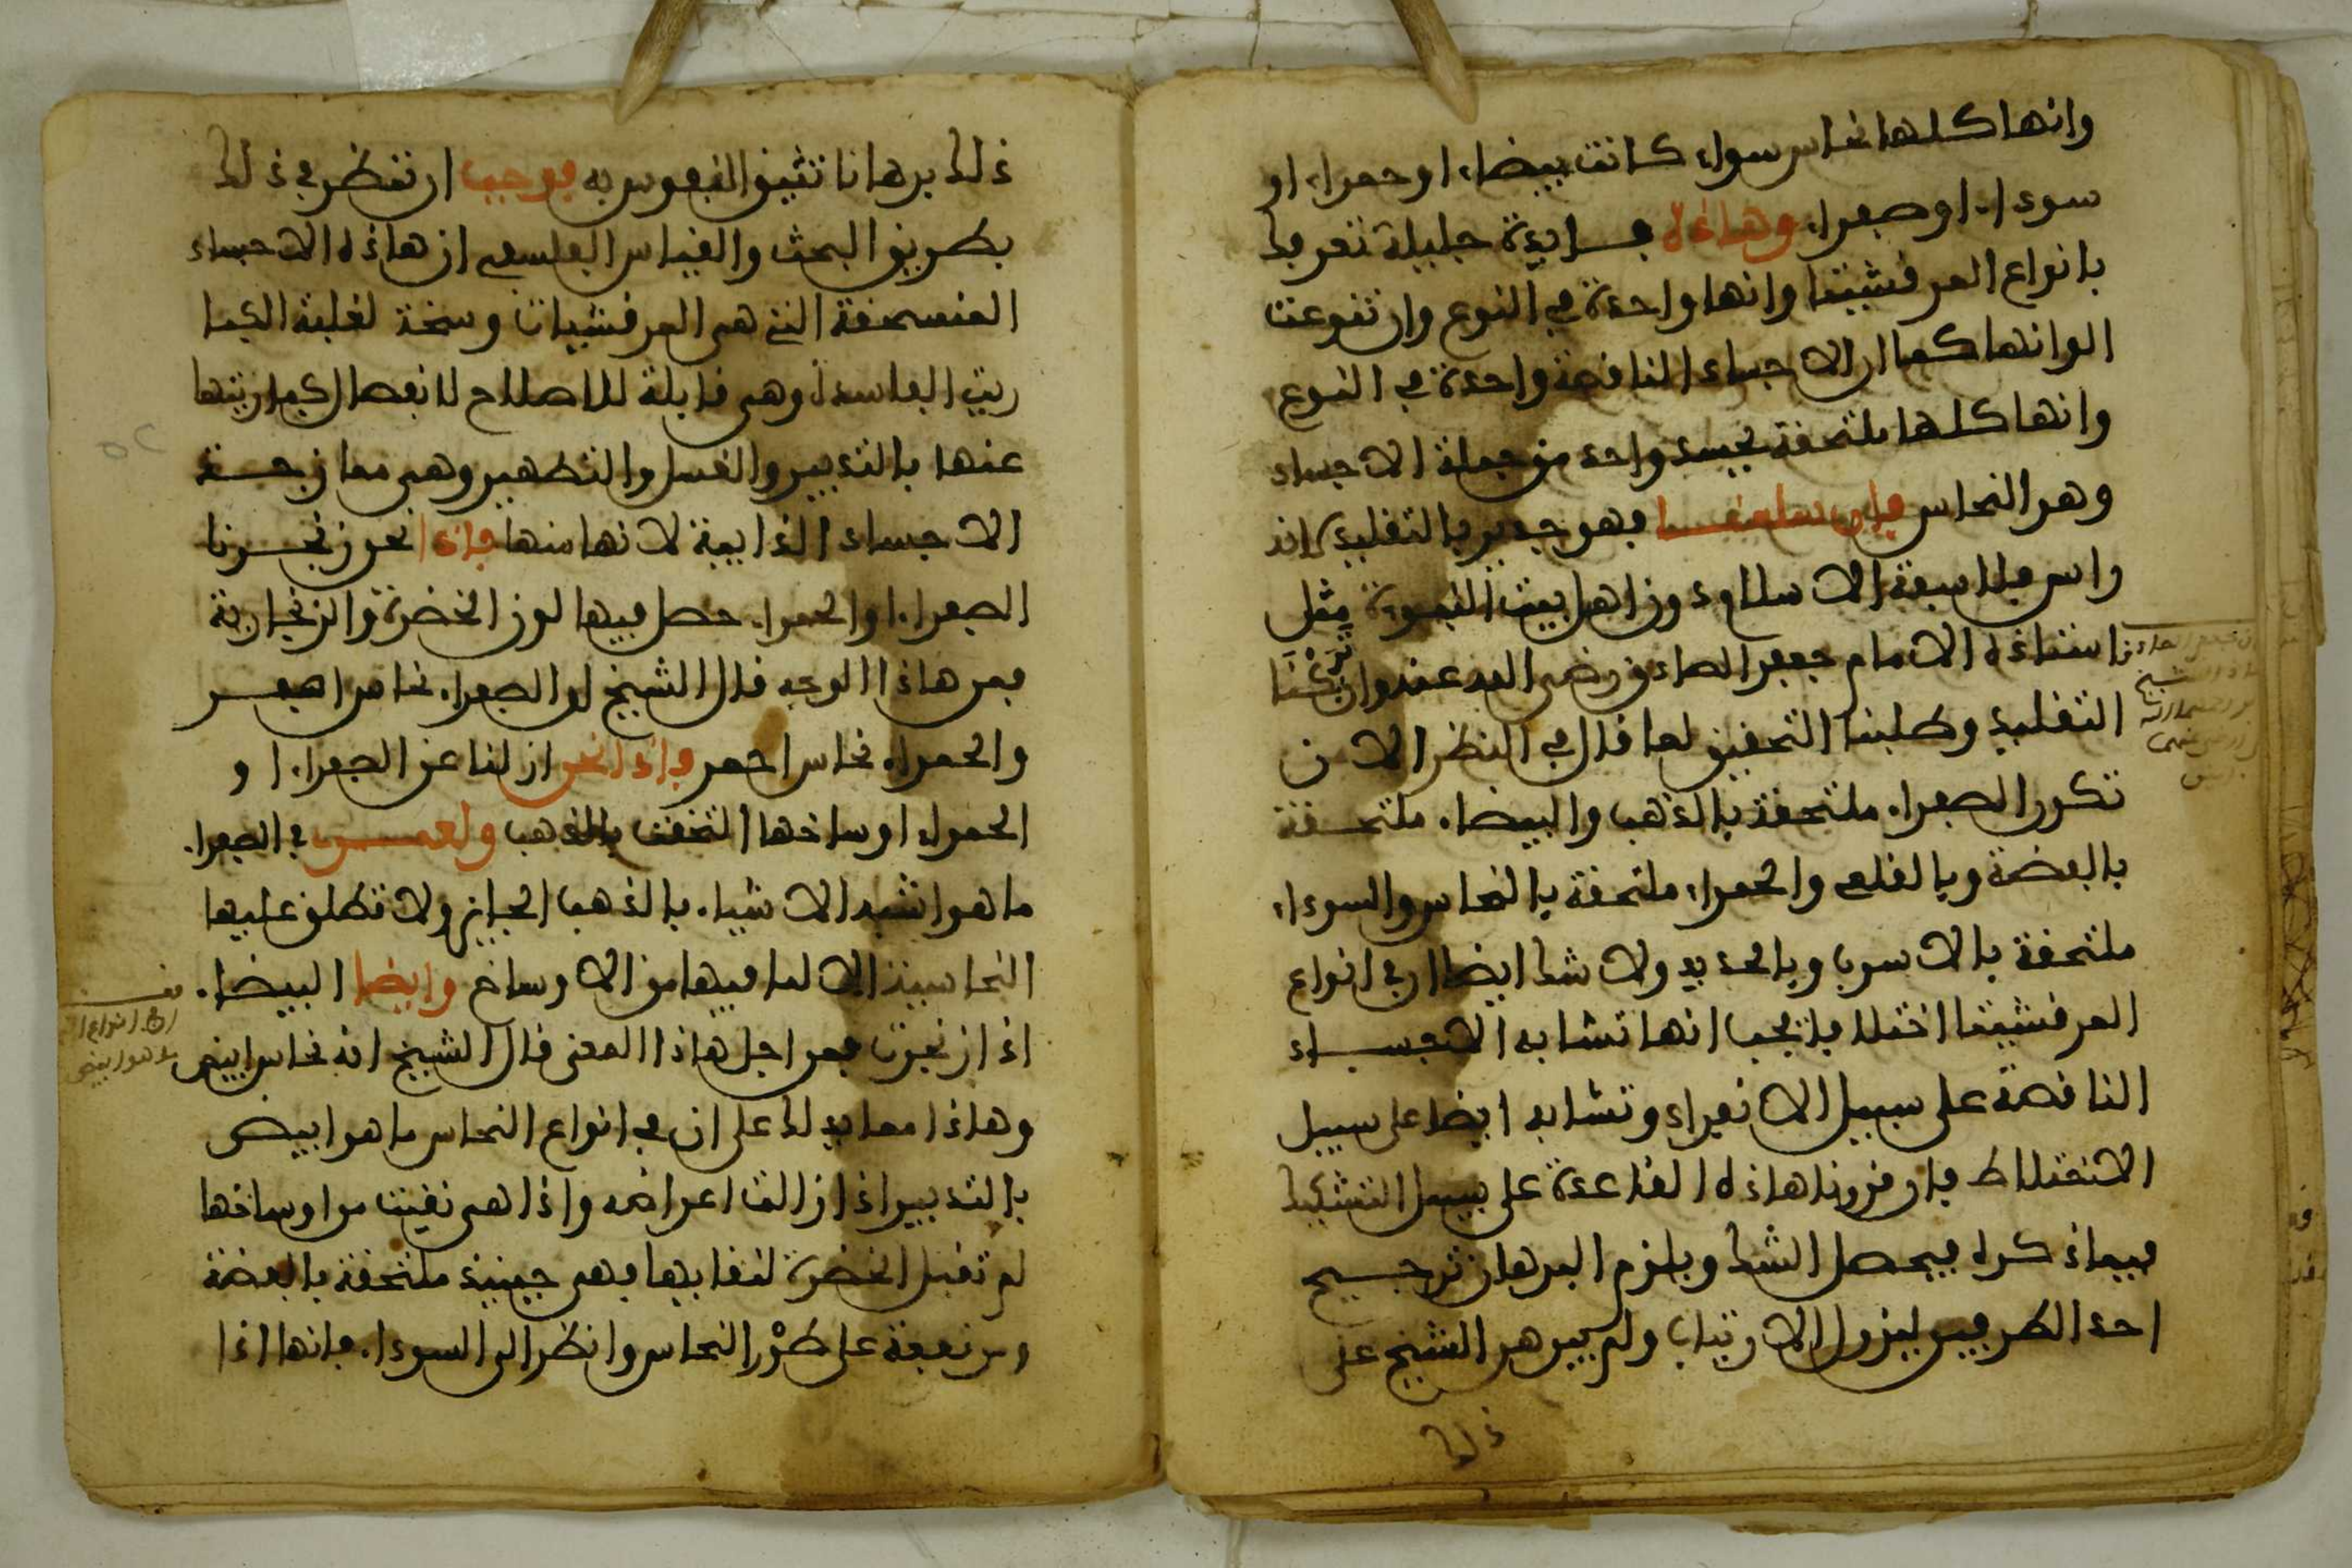 وانها كلها نحاس سواء كانت بيضاء او حمراء او
سوداء او صفراء وهاذه فايدة جليلة تعريفك
بانواع المرقشيثا وانها واحدة في النوع وان تنوعت
الوانها كما ان الاجساد الناقصة واحدة في النوع
وانها كلها ملتحقة بجسد واحد من جملة الاجساد
وهو النحاس فهو جدير بالتقليد لانه
راس فلاسفة الاسلام وزاهل بيت النبوة مثل
استاذه الامام جعفر الصادق رضي الله عنه وان تركنا
التقليد وطلبنا التحقيق لما قال في النظر الان
تكون الصفراء ملتحقة بالذهب والبيضاء ملتحقة
بالفضة وبالقلعي والحمراء ملتحقة بالنحاس والسوداء
ملتحقة بالاسرب وبالحديد ولا شك ايضا ان في انواع
المرقشيثا اختلافا يجب انها تشابه الاجساد
الناقصة على سبيل الانفراد وتشابه ايضا على سبيل
الاختلاط فان قررنا هاذه القاعدة على سبيل التشكيك
فيما ذكره فيحصل الشك ويلزم البرهان ترجيح
احد الطرفين ليزول الارتياب ولم يبرهن الشيخ على
ذلك
ذلك برهانا تثيق النفوس به فوجب ان تنظر في ذلك
بطريق البحث والقياس الفلسفي ان هاذه الاجساد
المنسحقة التي هي المرقشيثات وسخة لغلبة الكبا
ريت الفاسدة وهي قابلة للاصلاح لانفصال كباريتها
عنها بالتدبير والغسل والتطهير وهي ممازجة
الاجساد الذايبة لانها منها فاذا نحن زنجرنا
الصفراء او الحمراء حصل فيها لون الخضرة والزنجارية
فمن هاذا الوجه قال الشيخ ان الصفراء نحاس اصفر
والحمراء نحاس احمر فاذا نحن ازلنا عن الصفراء او
الحمراء اوساخها التحقت بالذهب ولعمري في الصفراء
ما هو اشبه الاشياء بالذهب الجايز ولا تطلق عليها
النحاسية الا لما فيها من الاوساخ وايضا البيضاء
اذا زنجرت فمن اجل هاذا المعنى قال الشيخ انه نحاس ابيض
وهاذا مما يدلك على ان في انواع النحاس ما هو ابيض
بالتدبير اذا زالت اعراضه واذا هي نقيت من اوساخها
لم تقبل الخضرة لنقايها فهي حينيذ ملتحقة بالفضة
ومرتفعة على طور النحاس وانظر الى السوداء فانها اذا